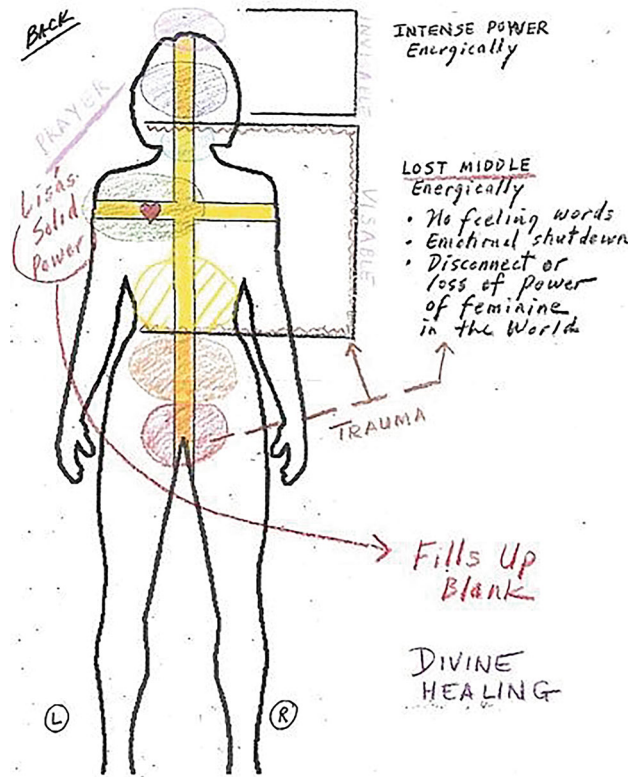 BACK
INTENSE POWER
Energically
INVISABLE
PRAYER
Lisa's
Solid
Power
LOST MIDDLE
Energically
• No feeling words
• Emotional shutdown
• Disconnect or
loss of power
of feminine
in the World
VISABLE
TRAUMA
Fills Up
Blank
DIVINE
HEALING
L
R